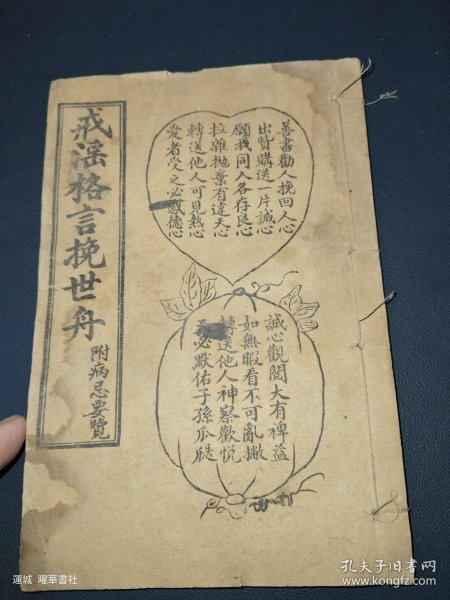 戒淫格言挽世舟
附病忌要覽
善書勸人挽回人心
出貲購送一片誠心
願我同人各存良心
拉雜抛棄有違天心
轉送他人可見熱心
愛者受之必感德心
誠心觀閱大有裨益
如無暇看不可亂撇
轉送他人神察歡悅
必默佑子孫瓜瓞
運城 曜華書社
孔夫子旧书网
www.kongfz.com